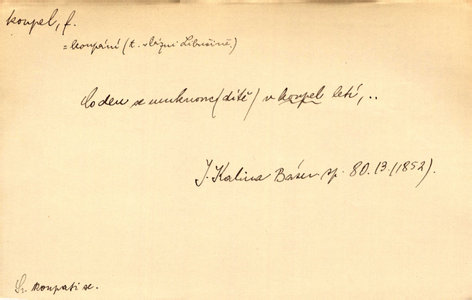 koupel, f.
= koupání (t. lázni Libušině)
Co den se umknouc (dítě) v koupel letí, ..
J. Kalina Báser. sp. 80.13. (1852).
Sr. koupati se.